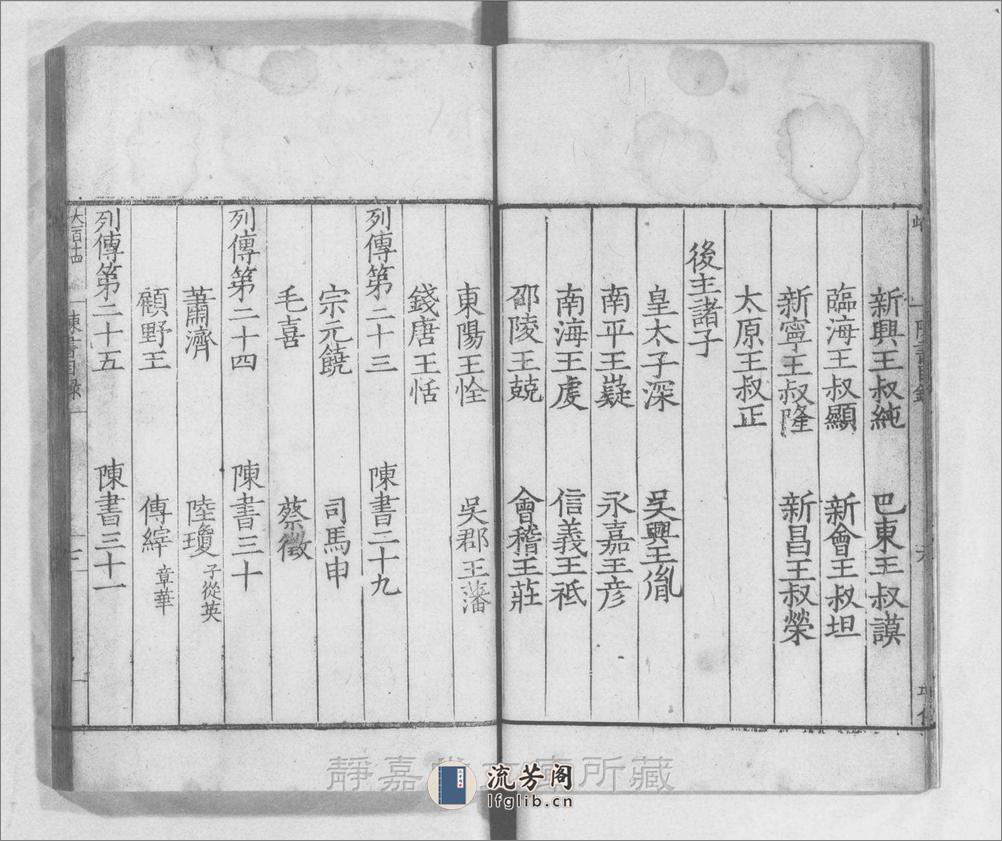 新興王叔純 巴東王叔謨
臨海王叔顯 新會王叔坦
新寧王叔隆 新昌王叔榮
太原王叔正
後主諸子
皇太子深 吳興王胤
南平王嶷 永嘉王彦
南海王虔 信義王祗
邵陵王兢 會稽王莊
東陽王恮 吳郡王藩
錢唐王恬
列傳第二十三 陳書二十九
宗元饒 司馬申
毛喜 蔡徵
列傳第二十四 陳書三十
蕭濟 陸瓊 子從英
顧野王 傅縡 章華
列傳第二十五 陳書三十一
大百十四 陳書目錄
靜嘉堂文庫所藏
流芳阁
lfglib.cn